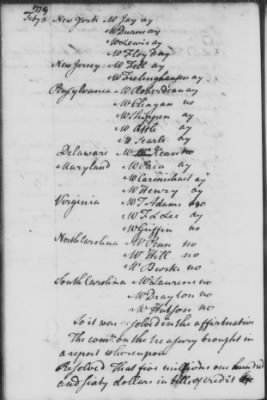 1779
Feby 3 New York Mr Jay ay
Mr Duane ay
Mr Lewis ay
Mr Floyd ay
New Jersey Mr Fell ay
Mr Frelinghuysen ay
Pensylvania Mr Roberdeau ay
Mr Clingan no
Mr Shippen ay
Mr Atlee ay
Mr Searle ay
Delaware Mr Kean no
Maryland Mr Paca ay
Mr Carmichael ay
Mr Henry ay
Virginia Mr T Adams no
Mr F L Lee ay
Mr Griffin no
North Carolina Mr Penn no
Mr Hill no
Mr Burke no
South Carolina Mr Laurens no
Mr Drayton no
Mr Hutson no
So it was resolved in the affirmative
The comee on the treasury brought
in a report whereupon
Resolved That five millions one hundred
and sixty dollars in bills of credit